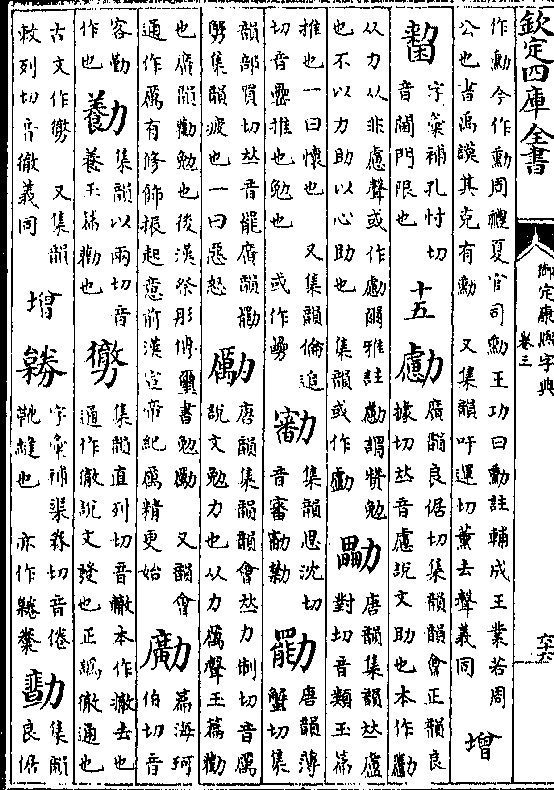 欽定四庫全書
御定康熙字典
卷三
作勳今作勲周禮夏官司勳王功曰勳註輔成王業若周
公也書禹謨其克有勳 又集韻吁運切薰去聲義同
增
字彙補孔忖切
音閫門限也
十五
勴
廣韻良倨切集韻韻會正韻良
據切𠀤音慮說文助也本作
从力从非慮聲或作勴爾雅註勴謂贊勉
也不以力助以心助也 集韻或作
唐韻集韻𠀤盧
對切音類玉篇
推也一曰懷也 又集韻倫追
切音推也勉也 或作
集韻思沈切
音審勤
唐韻薄
蟹切集
韻部買切𠀤音罷廣韻
集韻疲也一曰惡怒
勵
唐韻集韻韻會𠀤力制切音厲
說文勉力也从力厲聲玉篇勸
也廣韻勸勉也後漢祭肜傳璽書勉勵 又韻會
通作厲有修飾振起意前漢宣帝紀厲精更始
篇海珂
伯切音
客勤
作也
集韻以兩切音
養玉篇勸也
集韻直列切音轍本作撤去也
通作徹說文發也正譌徹通也
古文作 又集韻
敕列切音徹義同
增
字彙補渠券切音倦
靴縫也 亦作
集韻
良倨